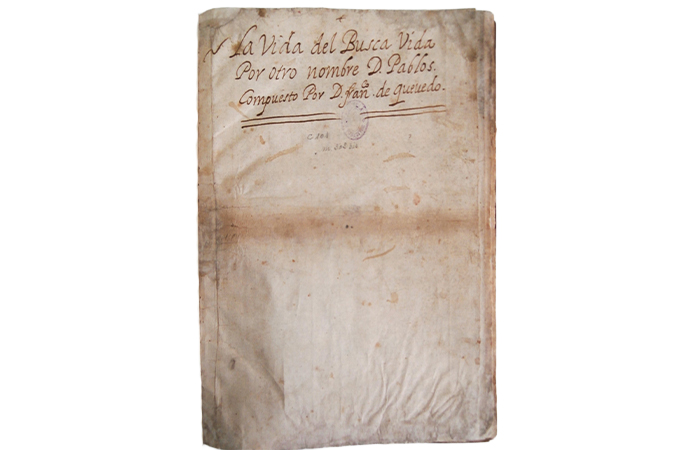 La Vida del Busca Vida
Por otro nombre D. Pablos.
Compuesto Por D. fran.co de quevedo.